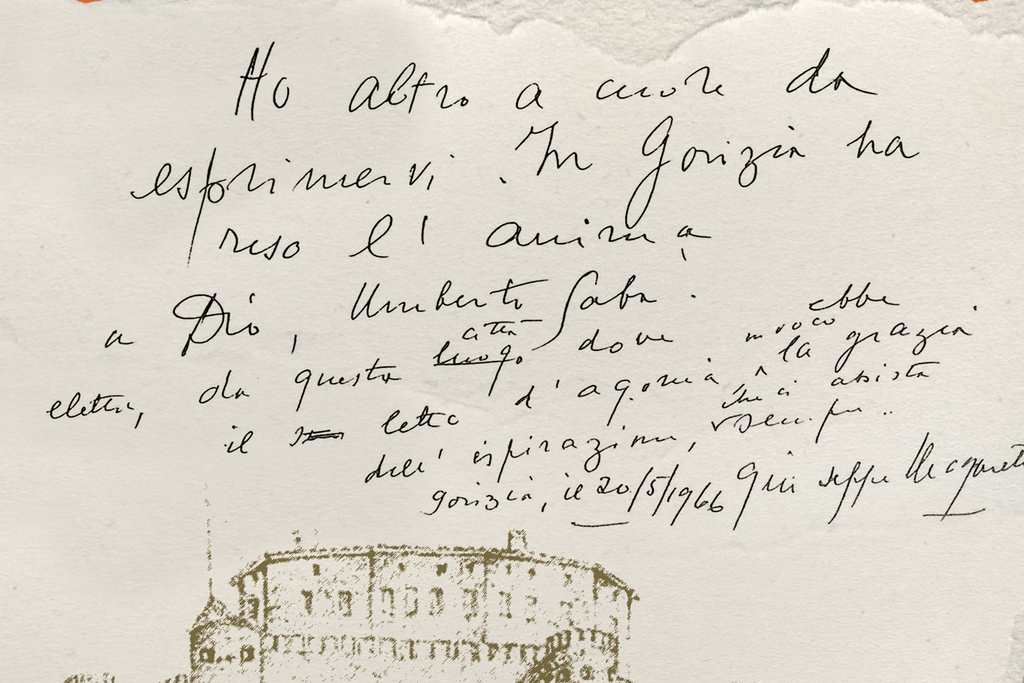 Ho altro a cuore da
esprimervi. In Gorizia ha
reso l'anima
a Dio, Umberto Saba.
eletta, da questa luogo città dove invocò ebbe
il letto d'agonia la grazia
dell'ispirazione, che ci assista sempre..
Gorizia, il 20/5/1966 Giuseppe